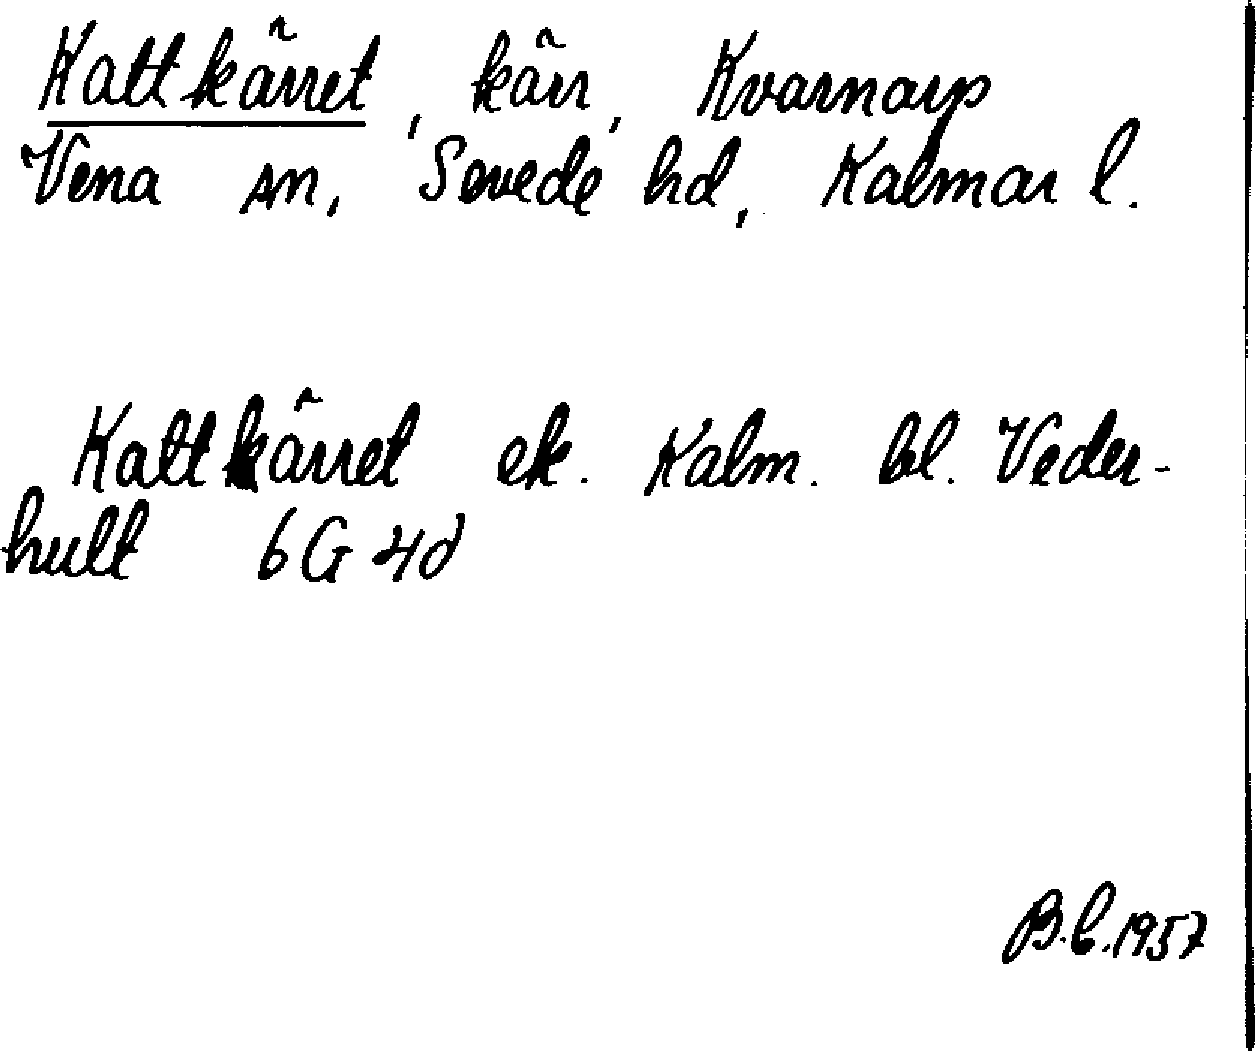 Kattkärret, kärr, Kvarnarp
Vena sn, Sevede hd, Kalmar l.
Kattkärret ek. Kalm. bl. Veder-
hult 6G 4d
B.C. 1957